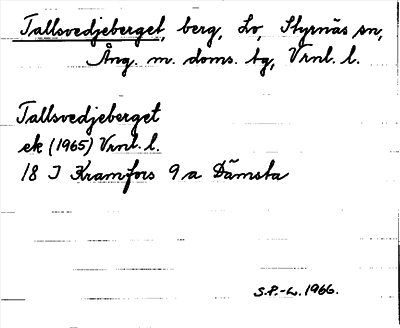 Tallsvedjeberget, berg, Lo, Styrnäs sn,
Ång. m. doms. tg, Vrnl. l.
Tallsvedjeberget
ek (1965) Vrnl. l.
18 J Kramfors 9 a Dämsta
S.P.-L. 1966.